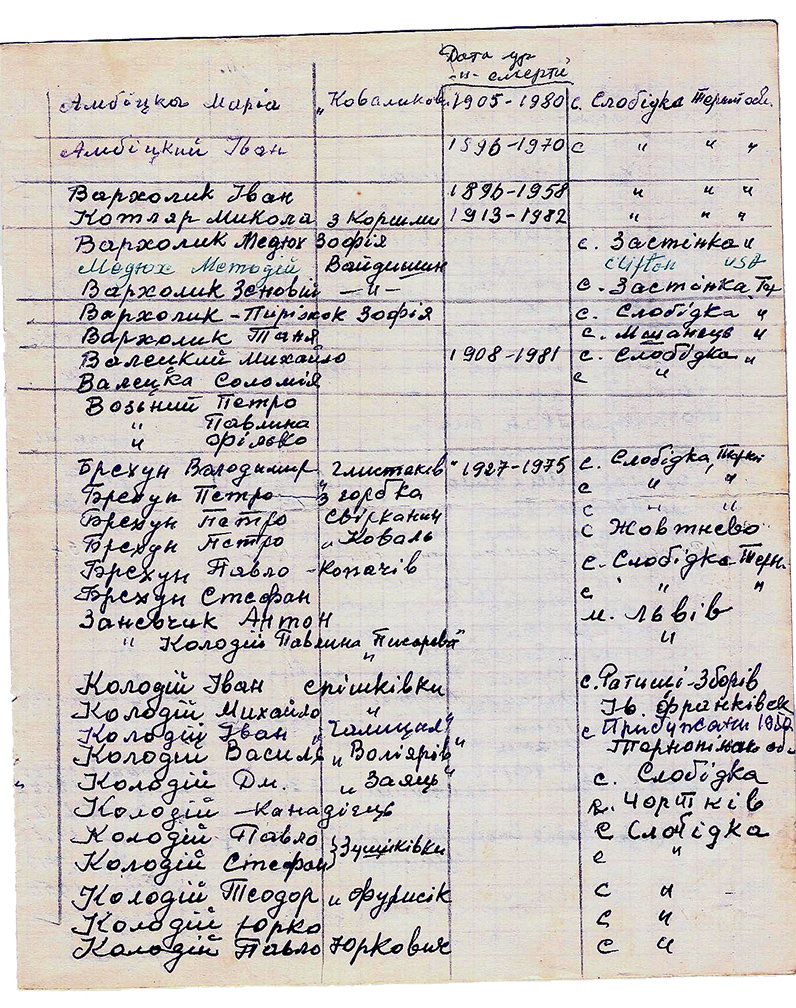 Дата ур
-"- смерти
Амбіцка Марія „Коваликов. 1905-1980 с. Слобідка Терноп обл.
Амбіцкий Іван 1896-1970 с " " "
Вархолик Іван 1896-1958 " " "
Котляр Микола з Коршми 1913-1982 " " "
Вархолик Медюх Зофія с. Застінка "
Медюх Методій Вайдишин Clifton USA
Вархолик Зеновій -"- с. Застінка Тер
Вархолик - Пиріжок Зофія с. Слобідка "
Вархолик Таня с. Мшанець "
Валецкий Михайло 1908-1981 с. Слобідка "
Валецка Соломія с "
Возьний Петро
" Павлина
" Філько
Брехун Володимир „Глистаків" 1927-1975 с. Слобідка,
Брехун Петро з горбка с " "
Брехун Петро свірканич с " "
Брехун Петро „Коваль с Жовтнево
Брехун Павло - копачів с. Слобідка Терн.
Брехун Стефан с " " "
Заневчик Антон м. Львів
" Колодій Павлина Писарева" "
Колодій Іван єрішківки с. Ратищі-Зборів
Колодій Михайло " Ів. Франківск
Колодій Іван „Галицил" с Прибужани
Колодій Василь „Воліярів" Тернопільск обл.
Колодій Дм. „Заяць" с. Слобідка
Колодій - канадієць Чортків
Колодій Павло } Зущіківки с Слобідка
Колодій Стефан с "
Колодій Теодор „Фурисік с "
Колодій Юрко с "
Колодій Павло Юркович с "